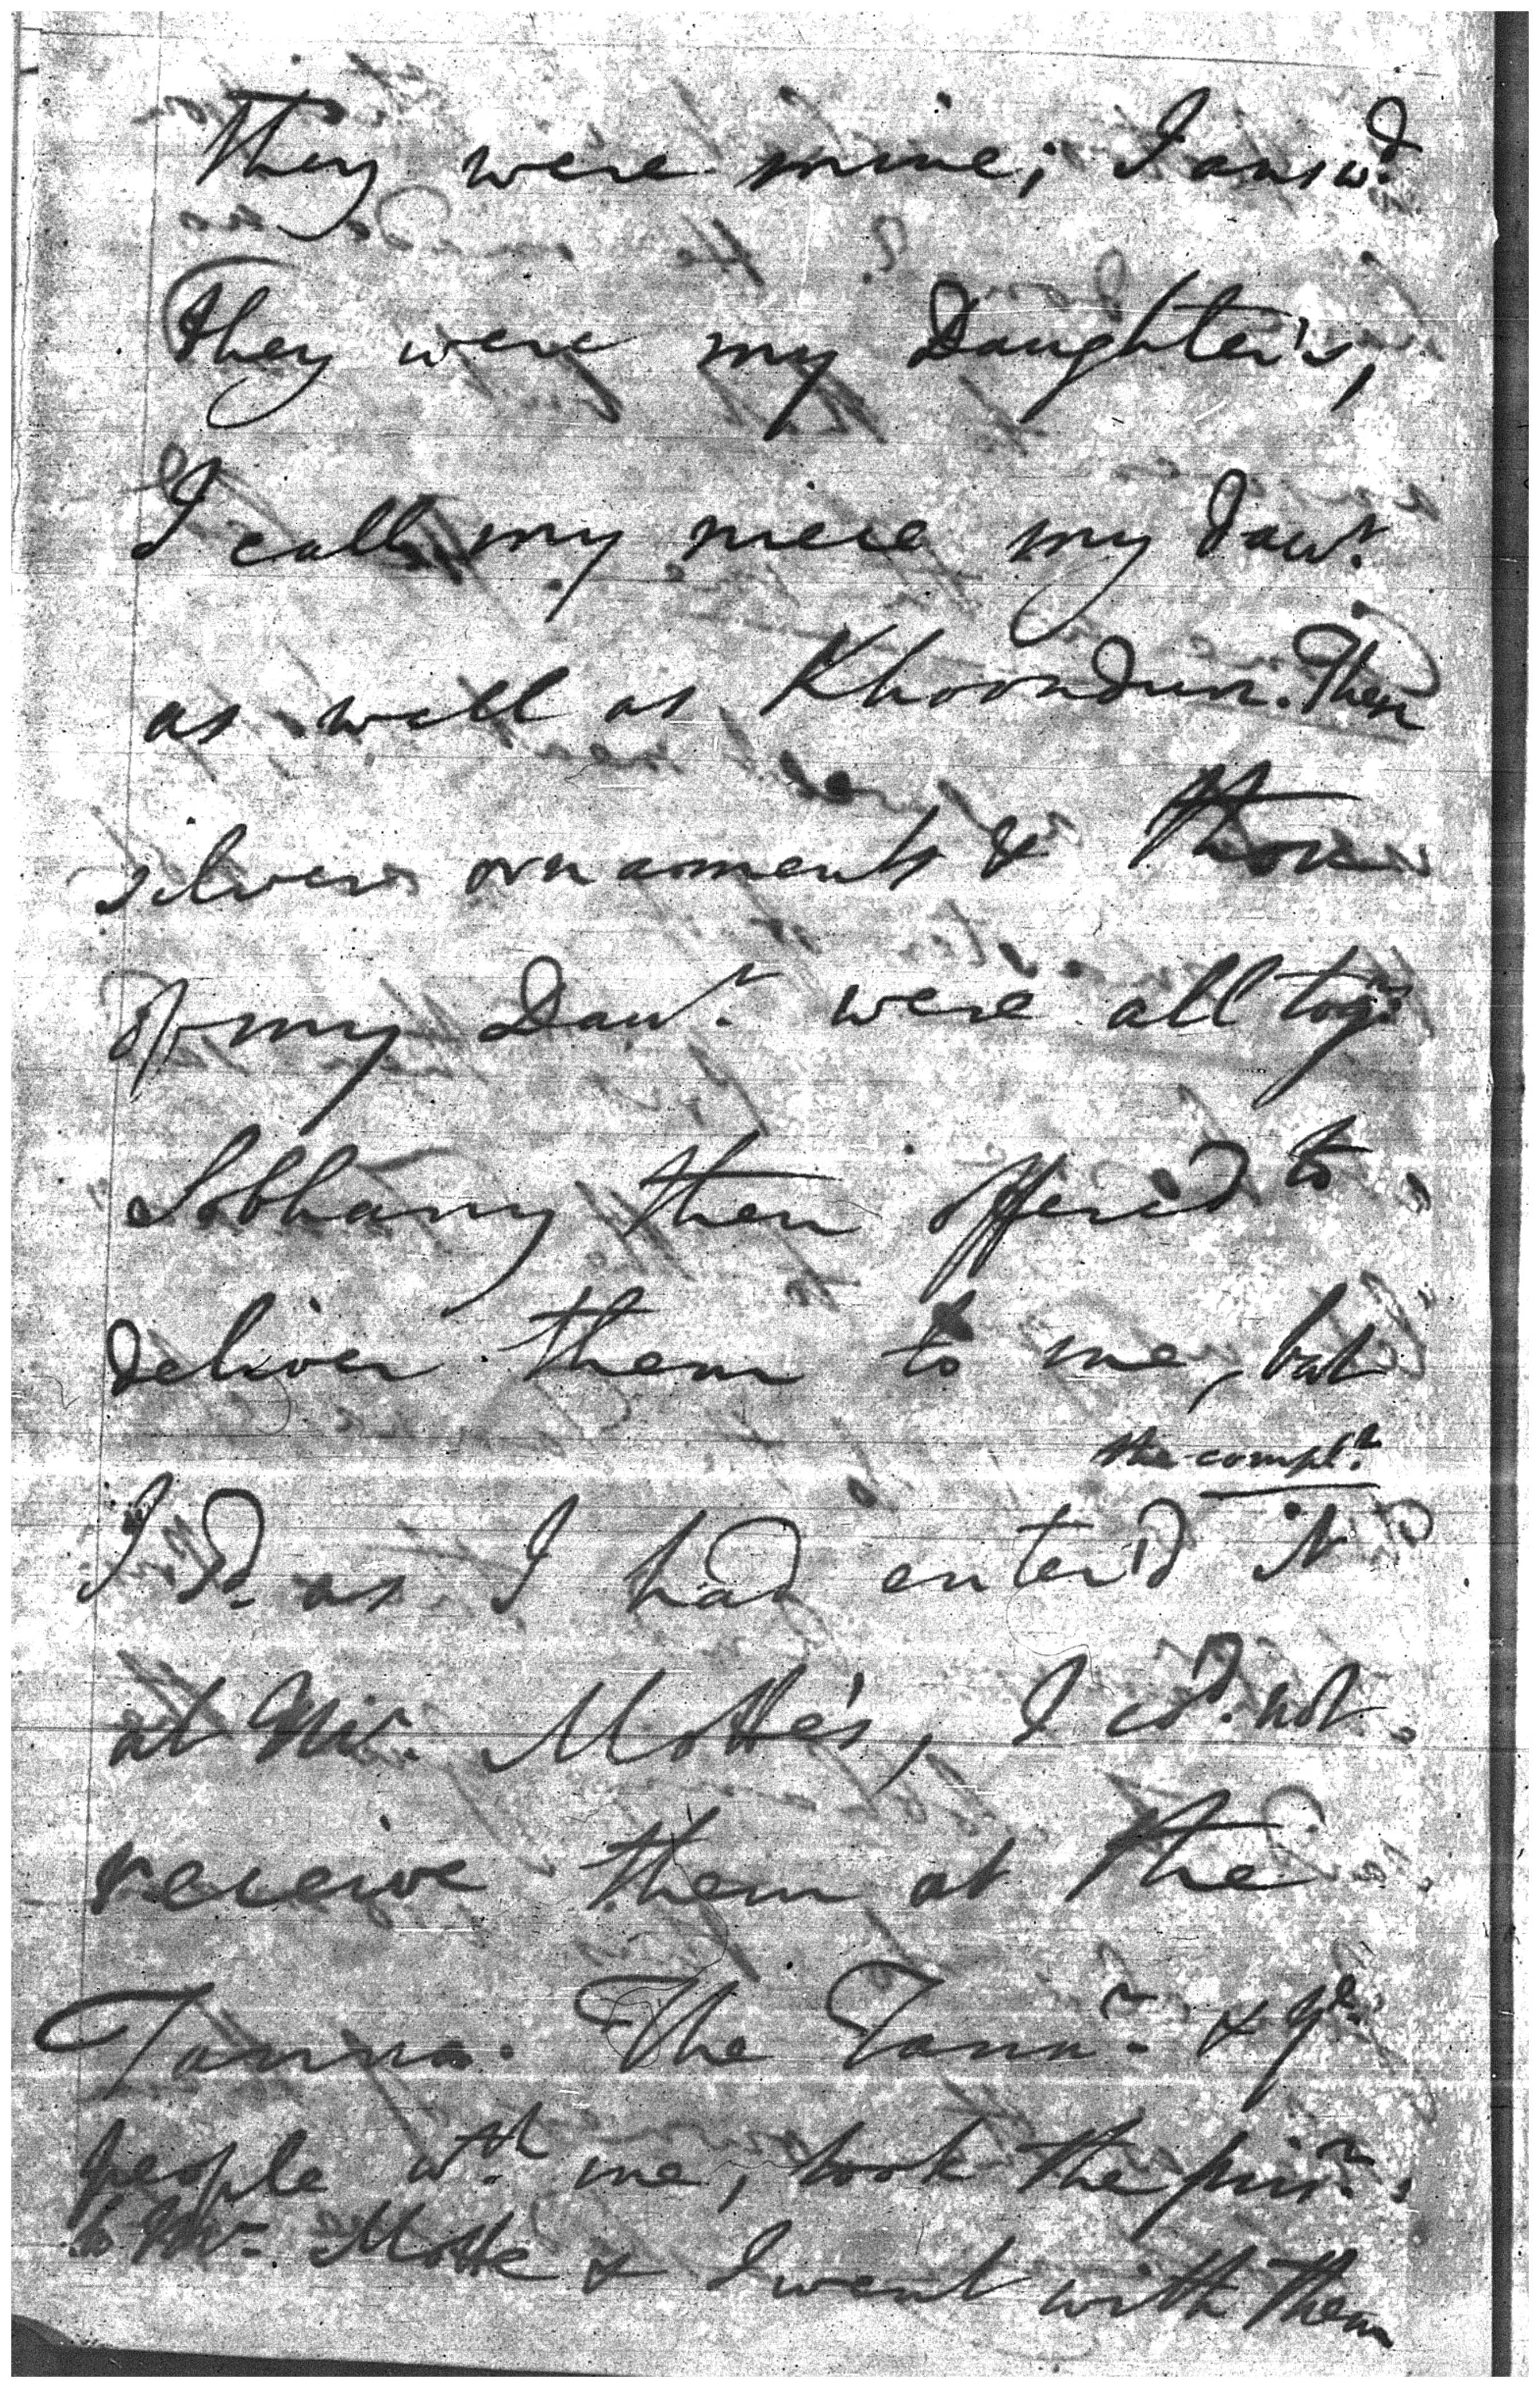 They were mine; I answd.
They were my Daughter's,
I call my niece my Daur.
as well as Khoondun. Then
silver ornaments & those
of my Daur. were all togr.
Sobhany then offered to
deliver them to me, but
the complt.
I sd. as I had enter'd it
at Mr. Motte's, I cd. not
receive them at the
Tanna. The Tannr. & ye.
people wth. me, took the prisr.
to Mr. Motte & I went with them